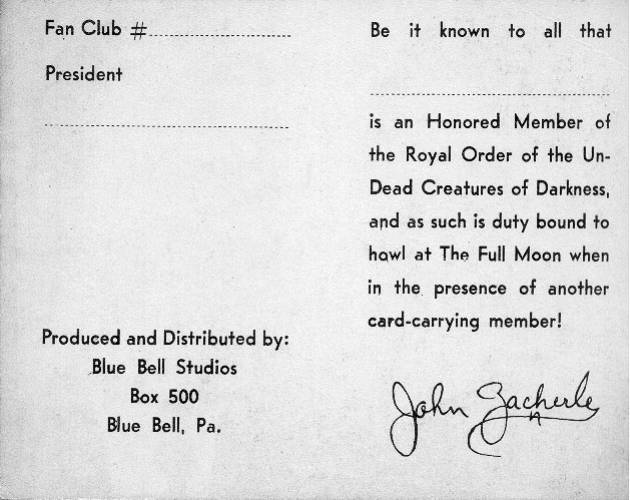 Fan Club #
President
Produced and Distributed by:
Blue Bell Studios
Box 500
Blue Bell, Pa.
Be it known to all that
is an Honored Member of
the Royal Order of the Un-
Dead Creatures of Darkness,
and as such is duty bound to
howl at The Full Moon when
in the presence of another
card-carrying member!
John Zacherle